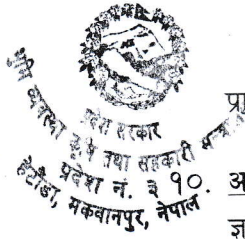 प्रदेश सरकार
भूमि व्यवस्था कृषि तथा सहकारी
प्रदेश नं. ३
हेटौंडा, मकवानपुर, नेपाल
प्रा
१०. अ
ज्ञ